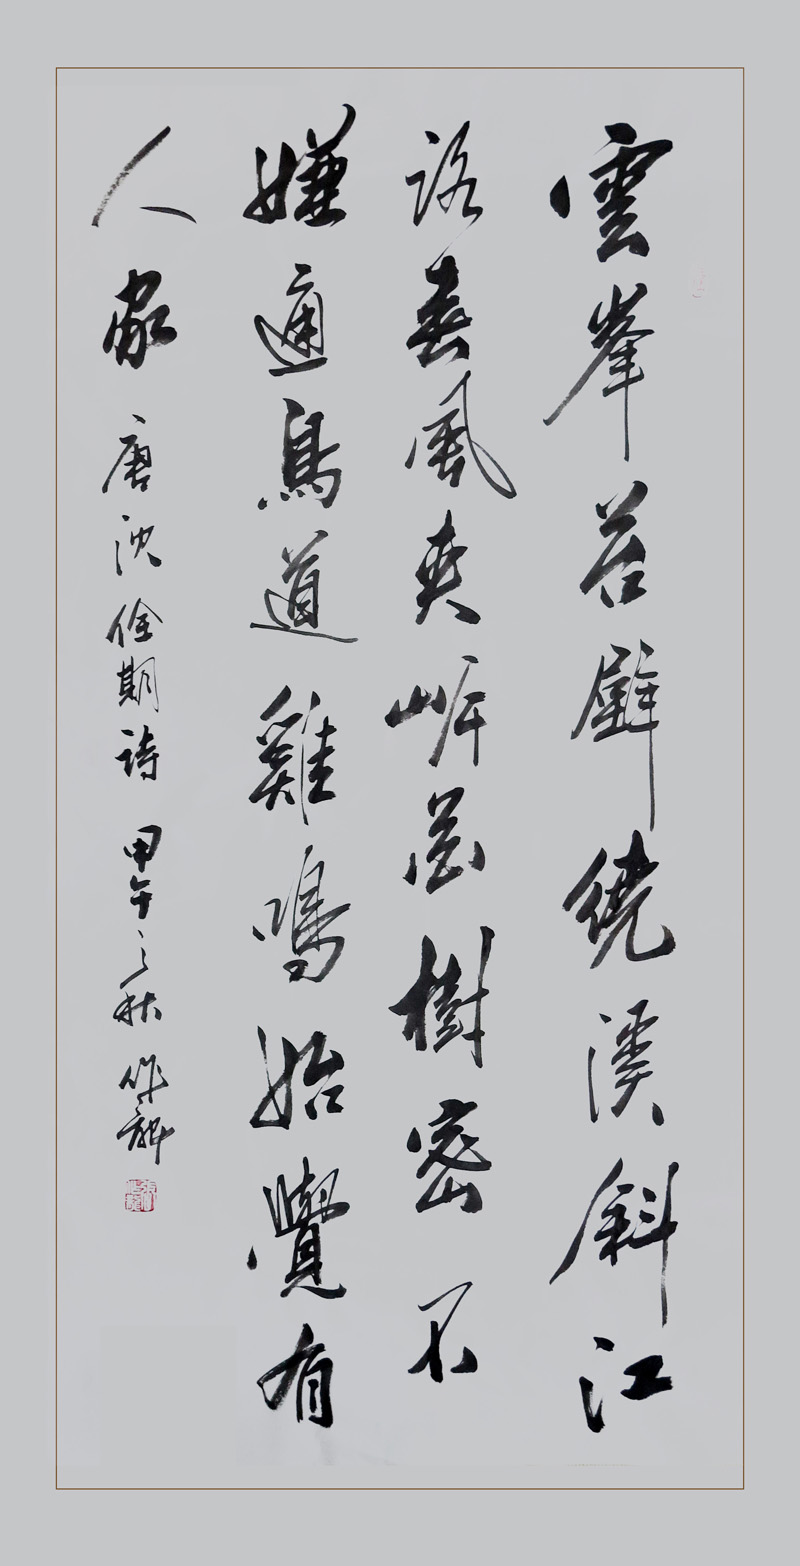 雲峯苔壁繞溪斜江
路香風夾岸花樹密不
嫌通鳥道雞鳴始覺有
人家 唐沈佺期詩 甲午之秋 作